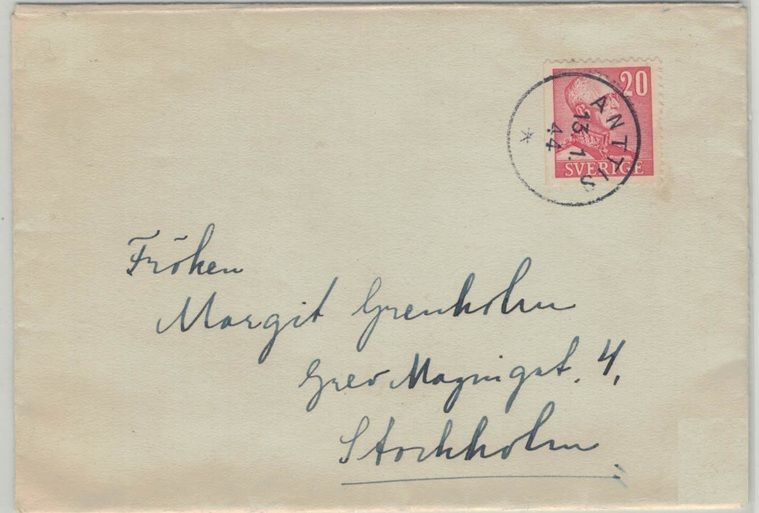 20
SVERIGE
ANTTIS
13.1.
44
Fröken
Margit Grenholm
Grev Magnigat. 4,
Stockholm